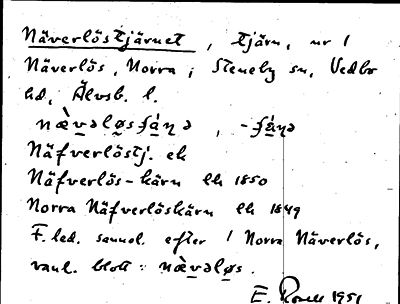 Näverlöstjärnet, tjärn, nr 1
Näverlös, Norra; Steneby sn, Vedbo
hd, Älvsb. l.
Näfverlöstj. ek
Näfverlös-kärn lk 1850
Norra Näfverlöskärn lk 1849
F. led. sannol. efter 1 Norra Näverlös,
vanl. blott:
E. 1951